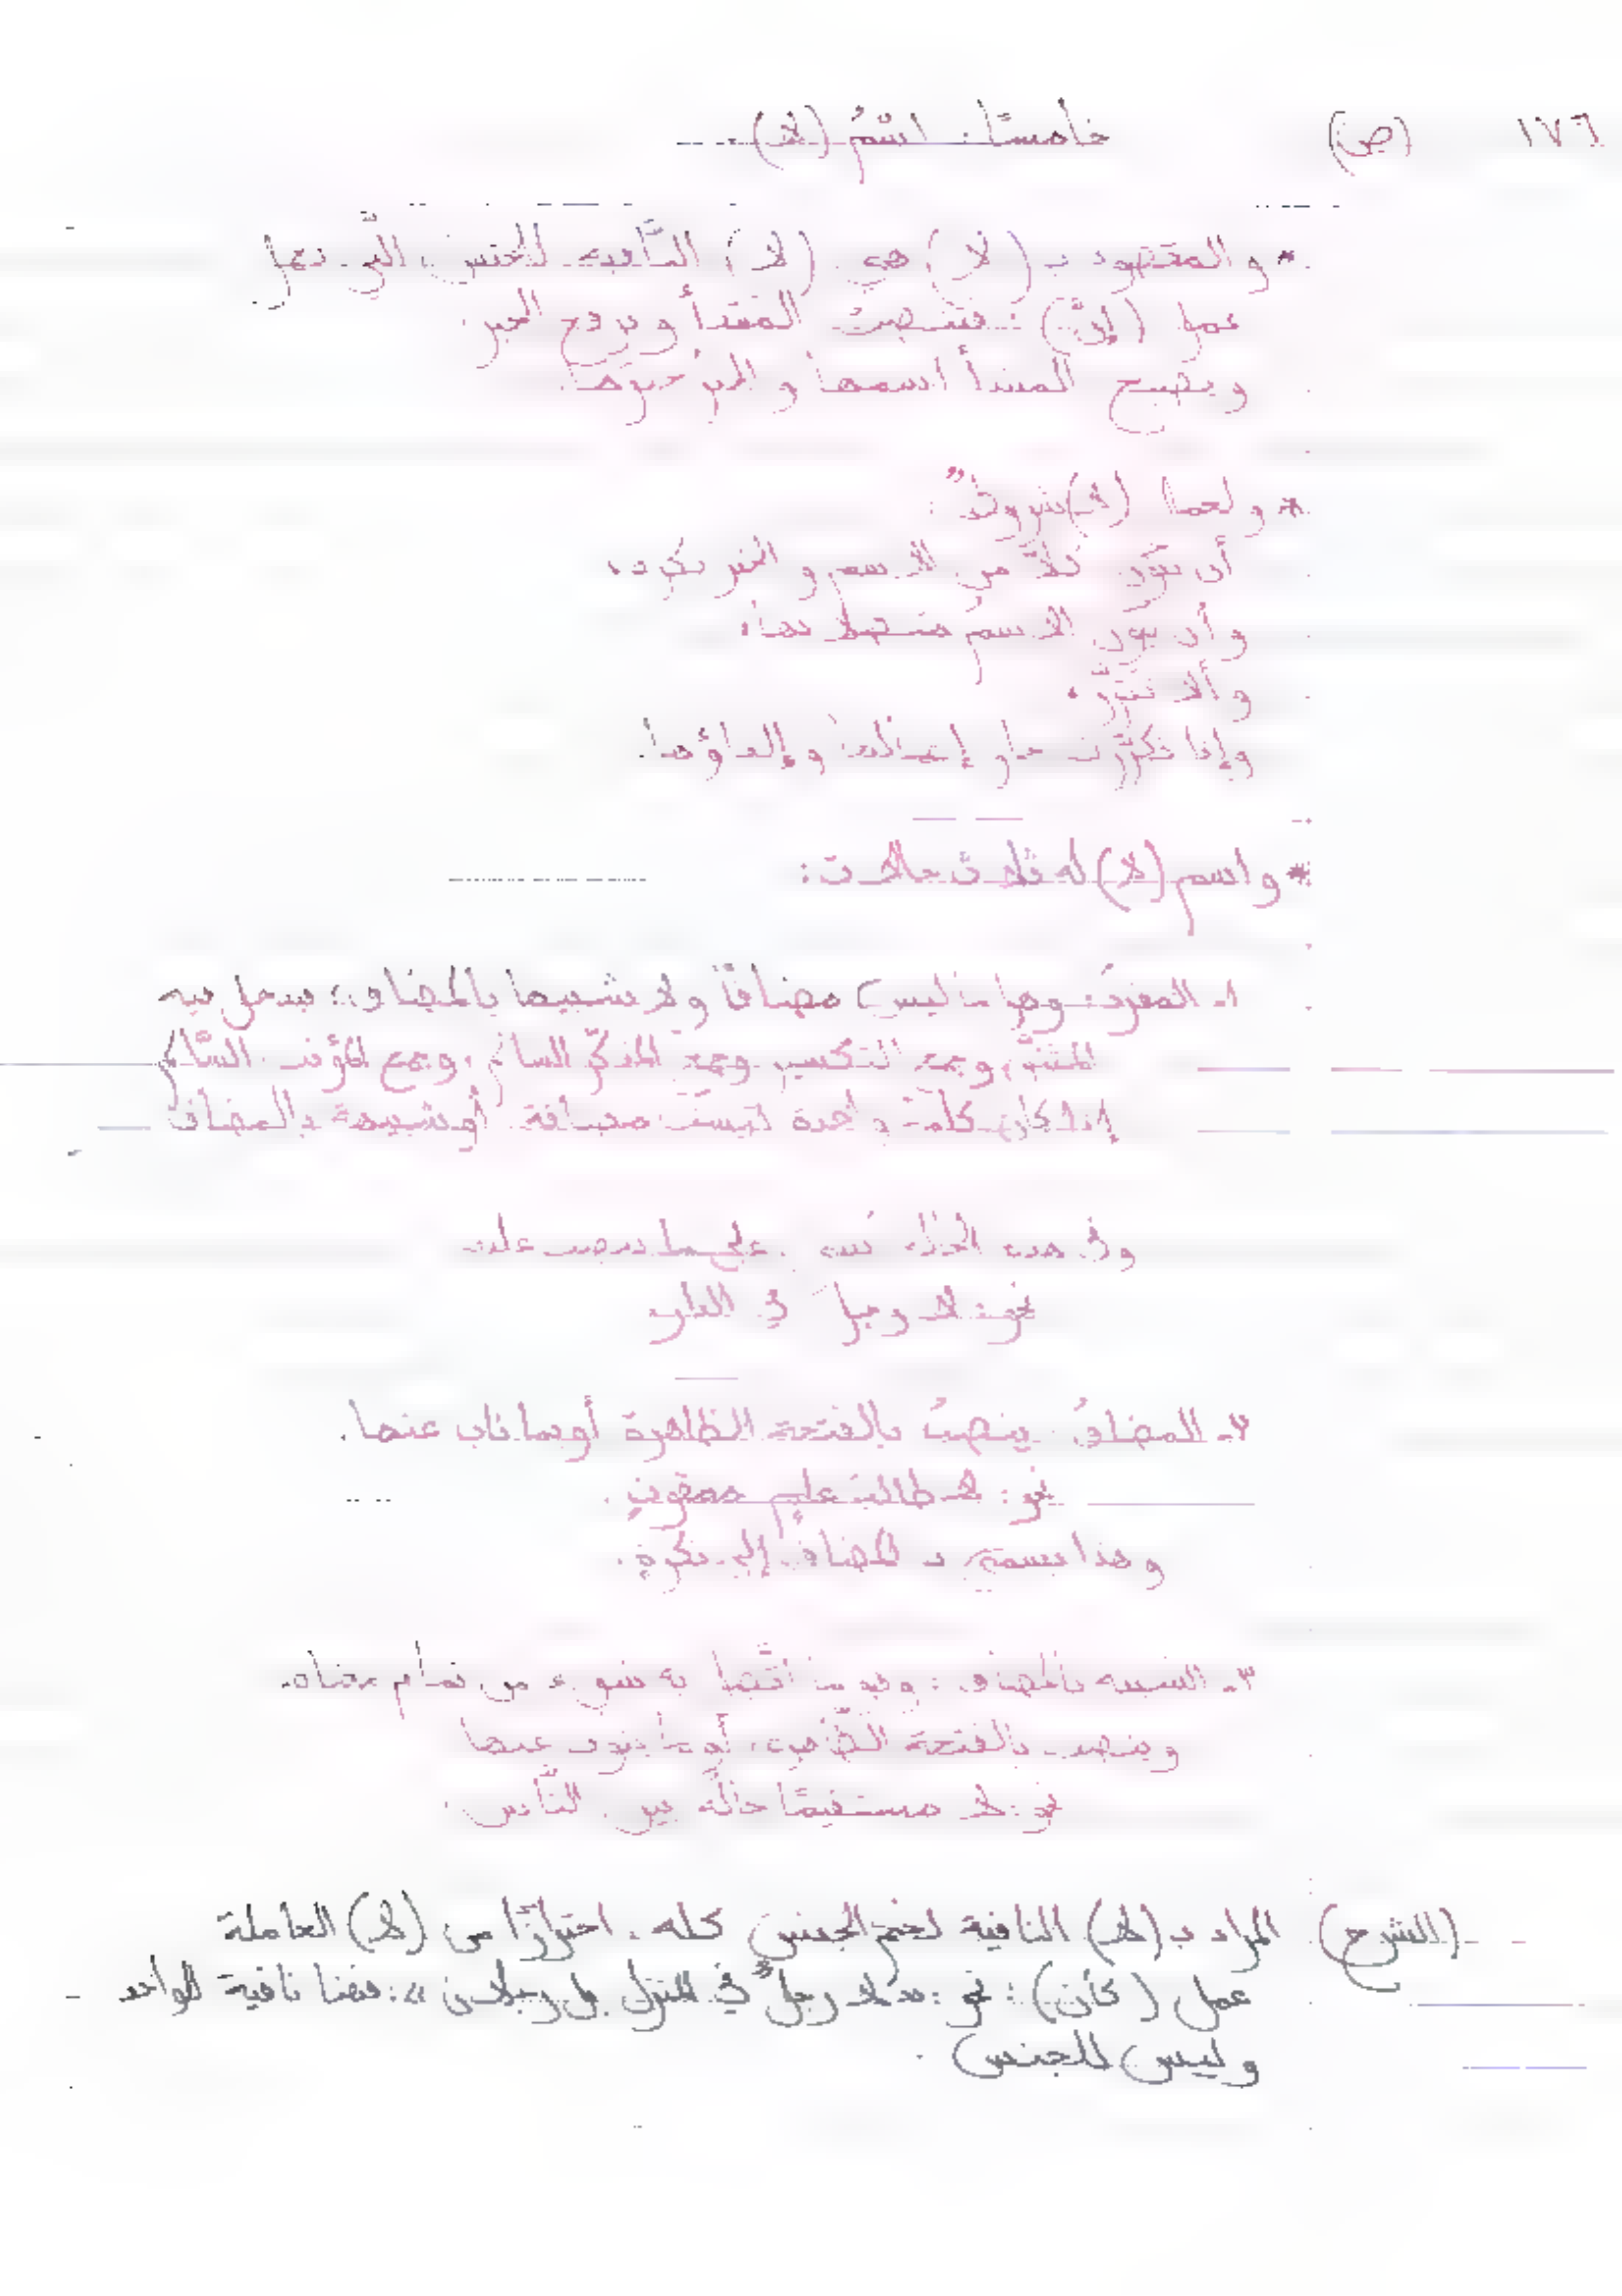 ١٧٦ (ص) خامسًا: اسمُ (لا)....
* والمقصود بـ (لا) هي (لا) النَّافية للجنس، التَّي تعمل
عمل (إنَّ) : فتنصبُ المبتدأ وترفع الخبر.
ويصبح المبتدأ اسمها والخبر خبرَها.
* ولعملها (لا) شروطٌ:
أن يكون كلاًّ من الاسم والخبر نكرة،
وأن يكون الاسمُ متصلا بها،
وألا تتكرَّر،
وإذا تكرَّرت جاز إعمالُها وإلغاؤها.
* واسم (لا) له ثلاث حالات:
١- المفردُ: وهو ما ليس مضافاً ولا شبيها بالمضاف، يدخل فيه
المثنَّى وجمع التكسير وجمع المذكّر السالم، وجمع المؤنث السَّالم
إذا كان كلمة واحدة ليست مضافة أو شبيهة بالمضاف
وفي هذه الحالة يبنى على ما ينصب عليه
نحو: لا رجلَ في الدار
٢- المضافُ: ينصبُ بالفتحة الظاهرة أو ما ناب عنها.
نحو: لا طالبَ علمٍ ممقوتٌ.
وهذا يسمى بـ المضاف إلى نكرةٍ.
٣- الشبيه بالمضاف: وهو ما اتَّصل به شيء من تمام معناه.
وينصب بالفتحة الظَّاهرة، أو ما ينوب عنها
نحو: لا مستقيمًا حاله بين النَّاس.
(الشرح) المراد بـ (لا) النافية لحكم الجنس كله، احترازًا من (لا) العاملة
عمل (كأن) : نحو: «لا رجلٌ في المنزل بل رجلان»: فهنا نافية للواحد
وليس للجنس.